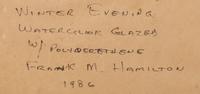 WINTER EVENING
WATERCOLOR GLAZED
W/ POLYURETHENE
FRANK M. HAMILTON
1986